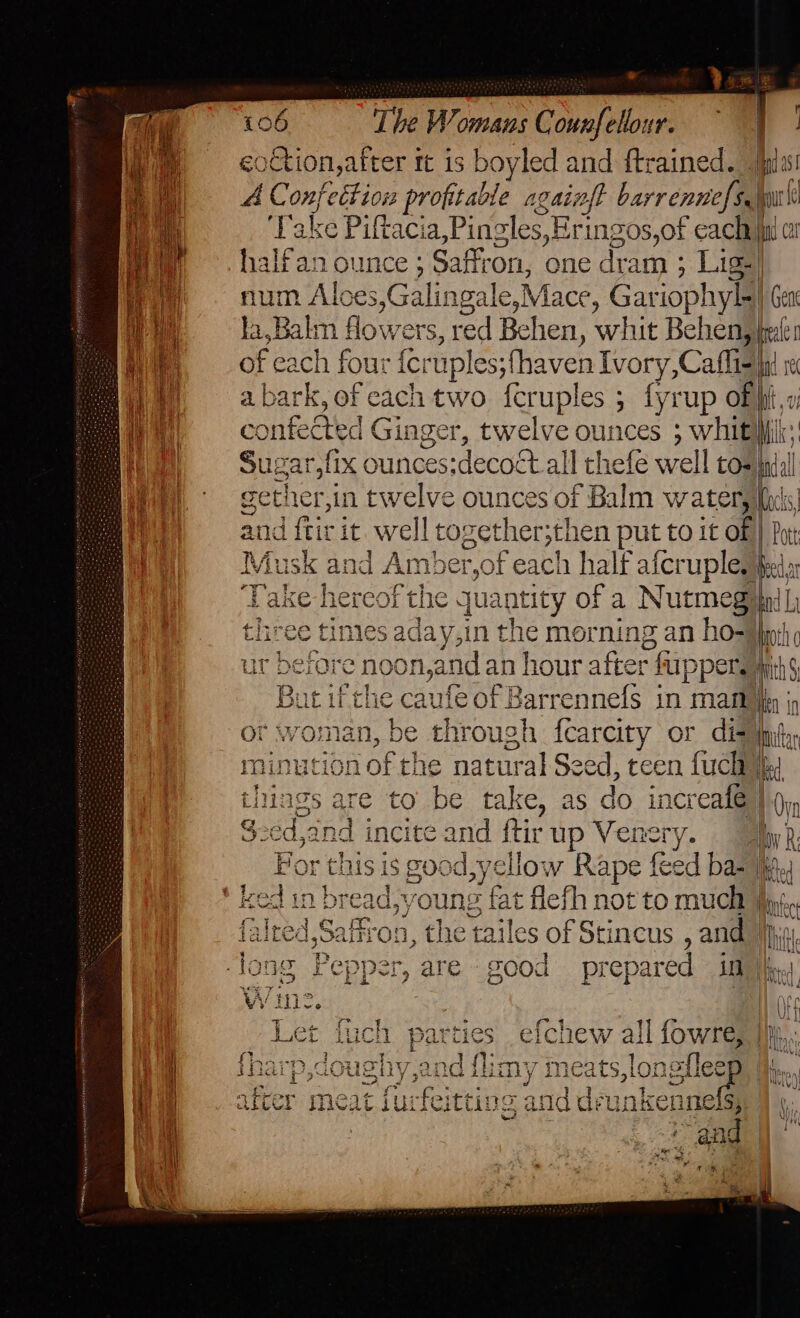 106 The Womans Counſellour.
coction,after it is boyled and ſtrained.
A Confection profitable againſt barrenneſs.
Take Piſtacia,Pingles,Eringos,of each
half an ounce ; Saffron, one dram ; Lig-
num Aloes,Galingale,Mace, Gariophyl-
la,Balm flowers, red Behen, whit Behen,
of each four ſcruples;ſhaven Ivory,Caſſi-
a bark, of each two ſcruples ; ſyrup of
confected Ginger, twelve ounces ; whit
Sugar,ſix ounces:decoct all theſe well to-
gether,in twelve ounces of Balm water,
and ſtir it well together;then put to it of
Musk and Amber,of each half aſcruple.
Take hereof the quantity of a Nutmeg
three times aday,in the morning an ho-
ur before noon,and an hour after ſupper.
But if the cauſe of Barrenneſs in man
or woman, be through ſcarcity or di-
minution of the natural Seed, teen ſuch
things are to be take, as do increaſe
Seed,and incite and ſtir up Venery.
For this is good,yellow Rape ſeed ba-
ked in bread,young fat fleſh not to much
ſalted,Saffron, the tailes of Stincus , and
long Pepper, are good prepared in
Wine.
Let ſuch parties eſchew all ſowre,
ſharp,doughy,and ſlimy meats,longſleep
after meat ſurfeitting and drunkenneſs,
and